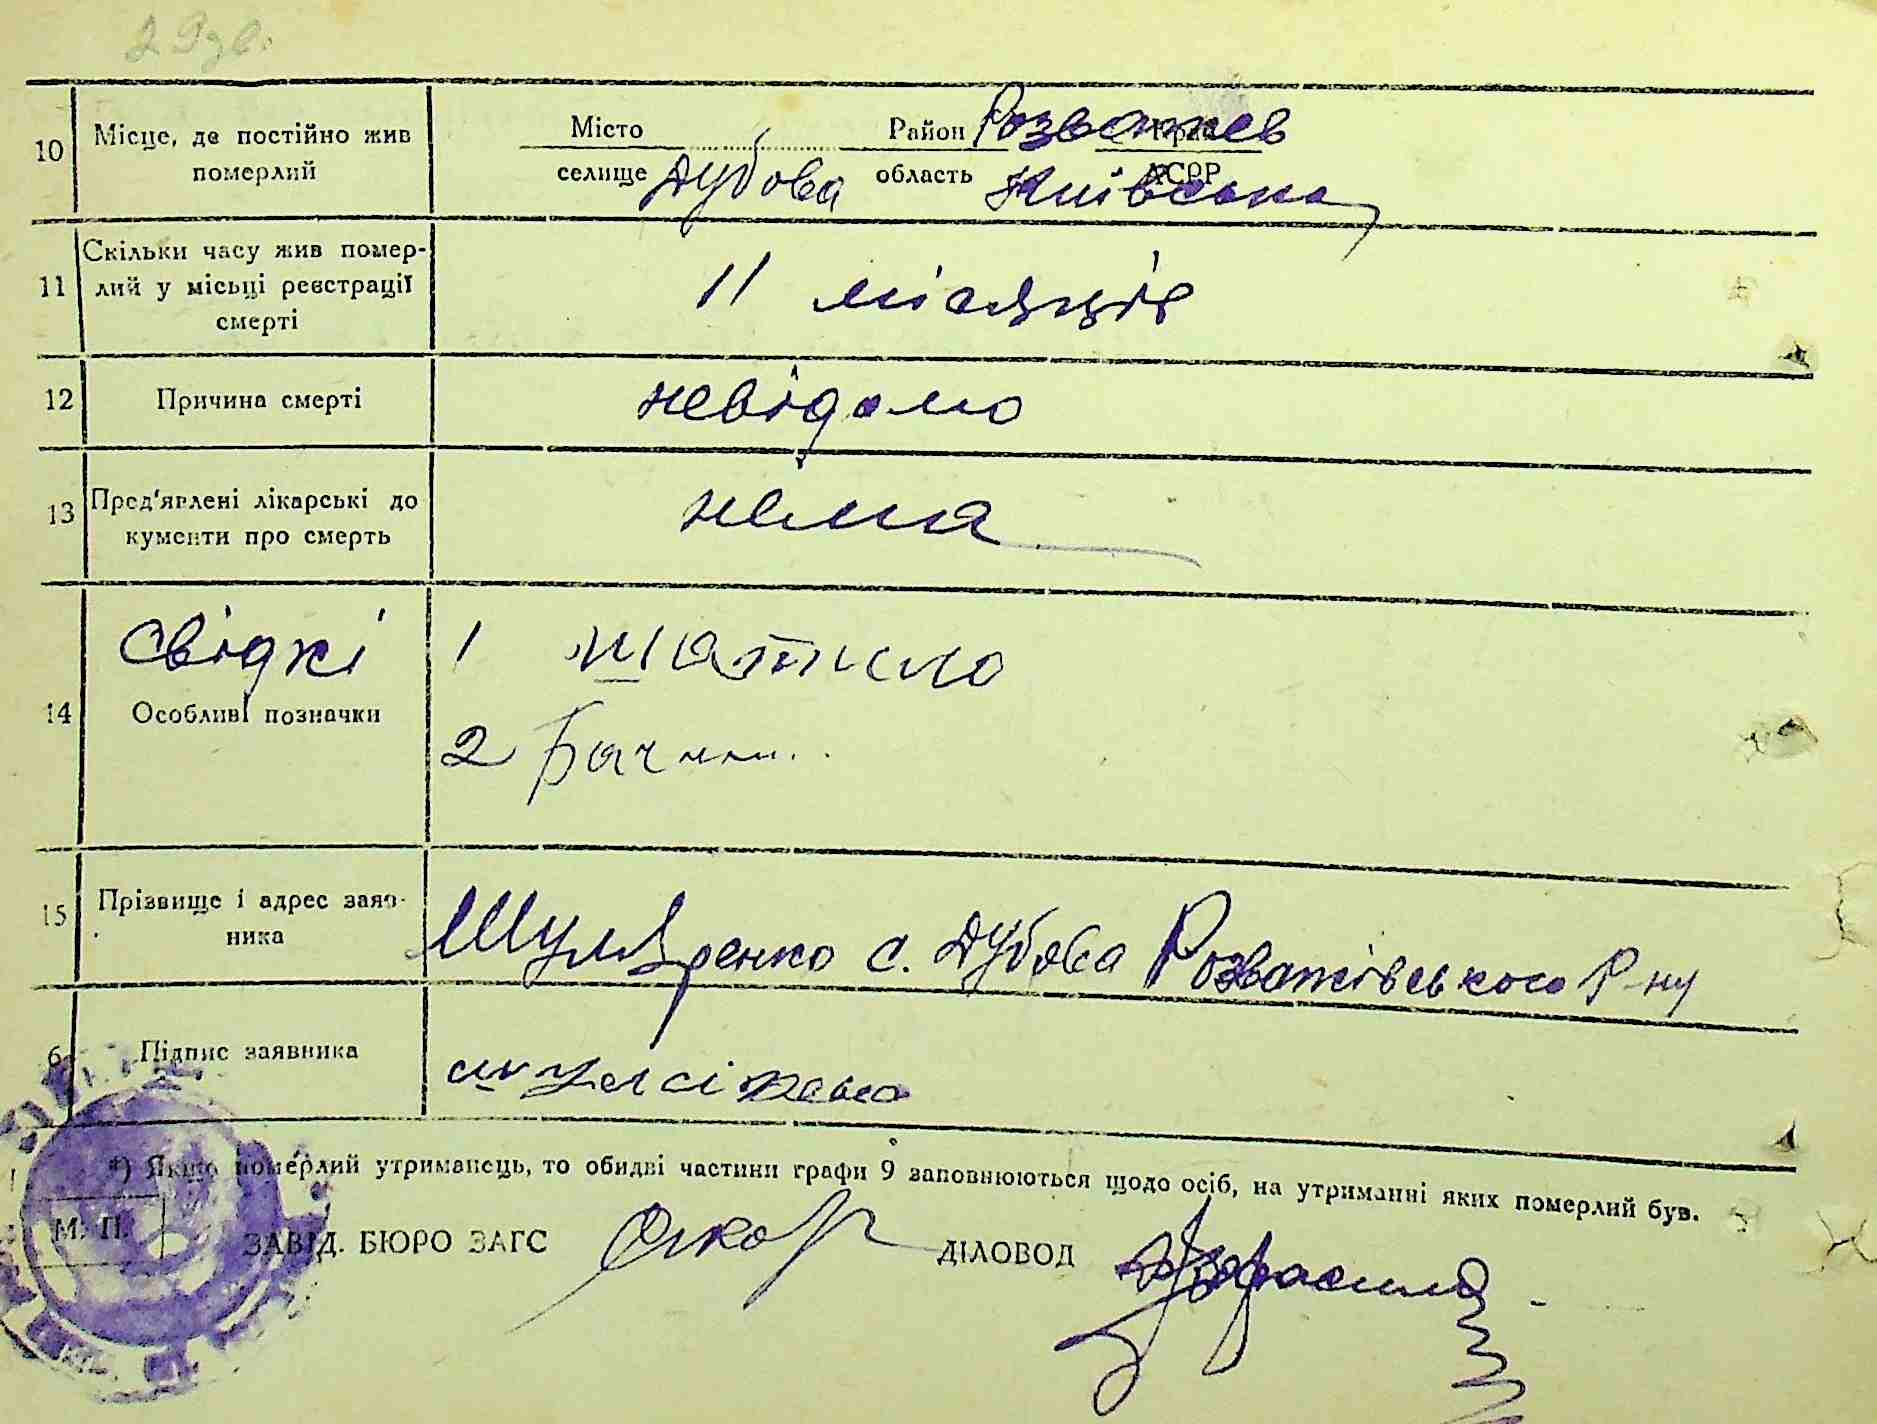 10 Місце, де постійно жив померлий
Місто Район Розважев Край
селище Дубова область Київська АСРР
11 Скільки часу жив помер-
лий у місьці реєстрації
смерті
11 місяців
12 Причина смерті невідомо
13 Пред'явлені лікарські до
кументи про смерть
нема
14 свідкі
Особливі позначки
1 Шатило
2
15 Прізвище і адрес заяв-
ника
Шуляренко с. Дубова Розважівського р-ну
6 Підпис заявника
*) Якщо померлий утриманець, то обидві частини графи 9 заповнюються щодо осіб, на утриманні яких померлий був.
М. П. ЗАВІД. БЮРО ЗАГС ДІЛОВОД